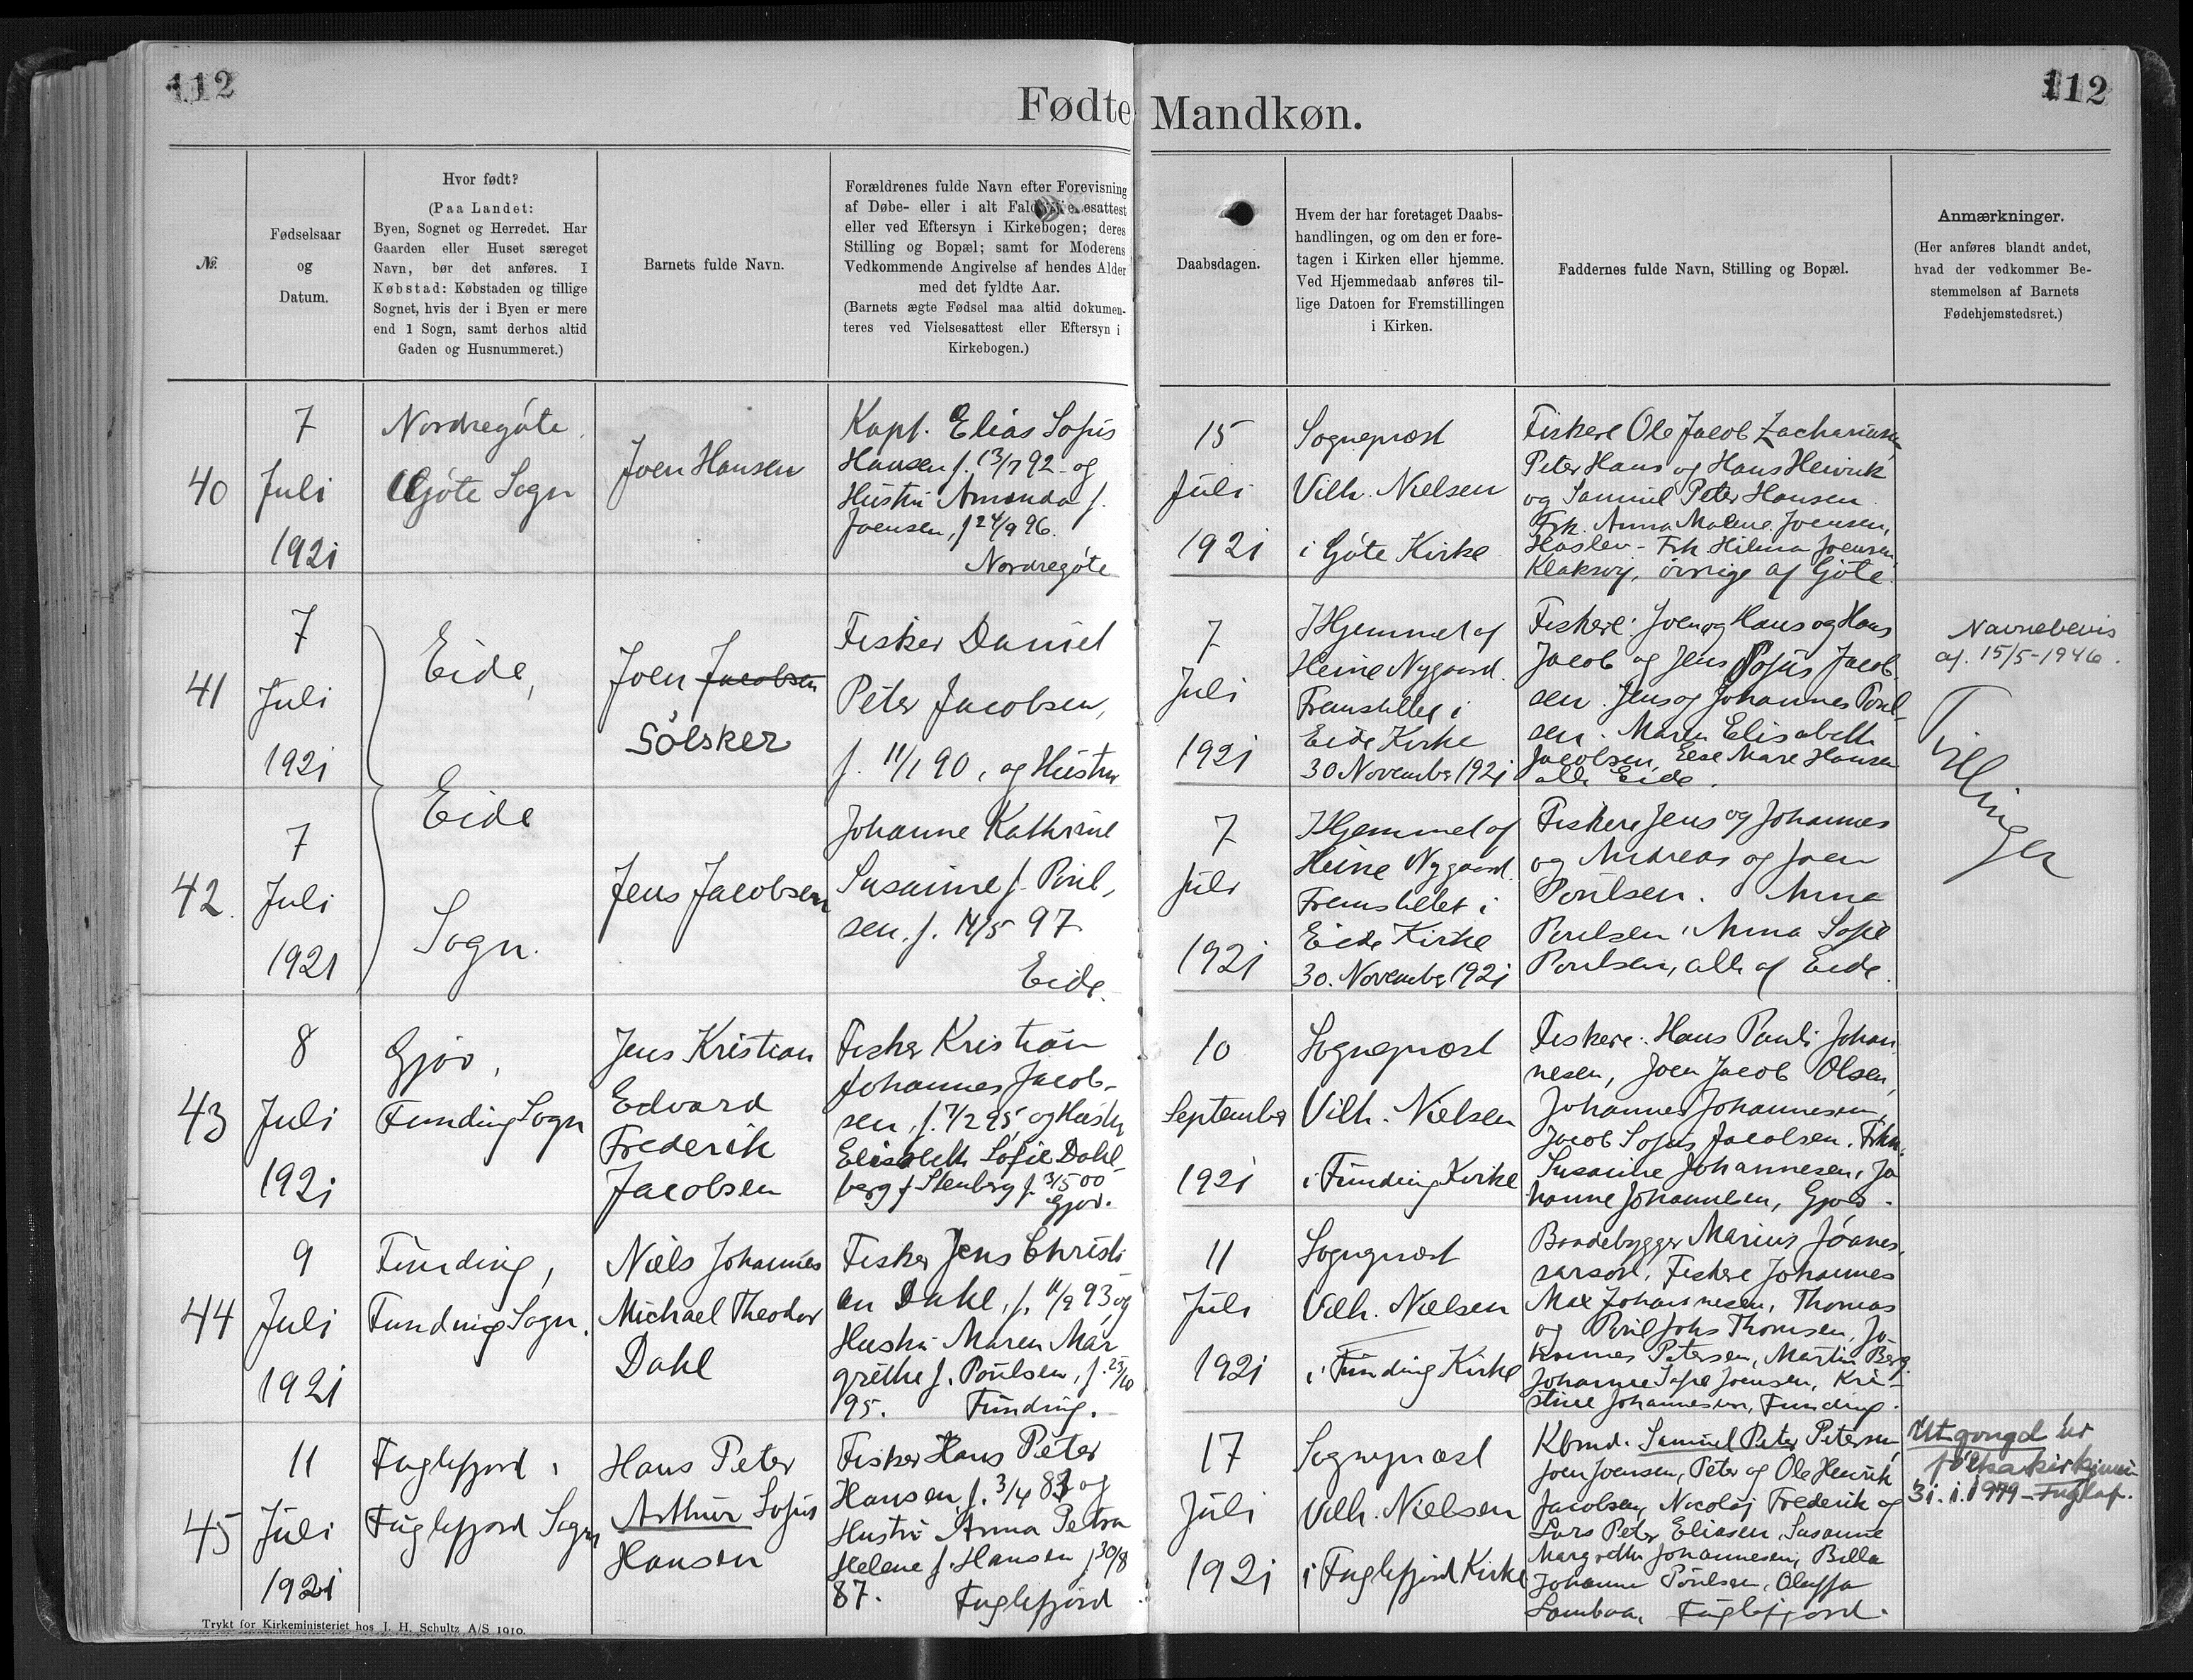 112
Fødte Mandkøn.
112
№.
Fødselsaar
og
Datum.
Hvor født?
(Paa Landet:
Byen, Sognet og Herredet. Har
Gaarden eller Huset særeget
Navn, bør det anføres. I
Købstad: Købstaden og tillige
Sognet, hvis der i Byen er mere
end 1 Sogn, samt derhos altid
Gaden og Husnummeret.)
Barnets fulde Navn.
Forældrenes fulde Navn efter Forevisning
af Døbe- eller i alt Fald
eller ved Eftersyn i Kirkebogen; deres
Stilling og Bopæl; samt for Moderens
Vedkommende Angivelse af hendes Alder
med det fyldte Aar.
(Barnets ægte Fødsel maa altid dokumen-
teres ved Vielsesattest eller Eftersyn i
Kirkebogen.)
Daabsdagen.
Hvem der har foretaget Daabs-
handlingen, og om den er fore-
tagen i Kirken eller hjemme.
Ved Hjemmedaab anføres til-
lige Datoen for Fremstillingen
i Kirken.
Faddernes fulde Navn, Stilling og Bopæl.
Anmærkninger.
(Her anføres blandt andet,
hvad der vedkommer Be-
stemmelsen af Barnets
Fødehjemstedsret.)
40
7
Juli
1921
Nordregóte
Gjóte Sogn
Joen Hansen
Kapt. Elias Sofus
Hansen f. 13/7 92 og
Hustru Amanda f.
Joensen, f 24/9 96.
Nordregóte
15
Juli
1921
Sognepræst
Vilh. Nielsen
i Góte Kirke
Fiskere Ole Jacob Zachariasen
Peter Hans og Hans Heinrik
og Samuel Peter Hansen.
Frk. Anna Malene Joensen,
Haslev - Frk Hilma Joensen
Klaksvig, övrige af Gjóte.
41
7
Juli
1921
Eide,
Joen Jacobsen
Sólsker
Fisker Daniel
Peter Jacobsen,
f. 11/1 90, og Hustru
7
Juli
1921
I Hjemmet af
Heine Nygaard.
Fremstillet i
Eide Kirke
30 November 1921
Fiskere: Joen og Hans og Hans
Jacob og Jens Sofus Jacob-
sen. Jens og Johannes Poul-
sen. Maren Elisabeth
Jacobsen, Else Mare Hansen
alle Eide.
Navnebevis
af. 15/5-1946.
Tvillinger
42.
7
Juli
1921
Eide
Sogn.
Jens Jacobsen
Johanne Kathrine
Susanne f. Poul-
sen. f. 14/5 97
Eide.
7
Juli
1921
I Hjemmet af
Heine Nygaard.
Fremstillet i
Eide Kirke
30. November 1921
Fiskere Jens og Johannes
og Andreas og Joen
Poulsen. Anna
Poulsen, Anna Sofie
Poulsen, alle af Eide.
43
8
Juli
1921
Gjov,
Funding Sogn
Jens Kristian
Edvard
Frederik
Jacobsen
Fisker Kristian
Johannes Jacob-
sen, f. 7/2 95, og Hustru
Elisabeth Sofie Dahl-
berg f Stenberg f. 3/5 00
Gjov.
10
September
1921
Sognepræst
Vilh. Nielsen
i Funding Kirke
Fiskere: Hans Pauli Johan
nesen, Joen Jacob Olsen,
Johannes Johannesen,
Jacob Sofus Jacobsen.
Susanne Johannesen, Jo
hanne Johannesen, Gjov.
44
9
Juli
1921
Funding,
Funding Sogn.
Niels Johannes
Michael Theodor
Dahl
Fisker Jens Christi
an Dahl, f. 11/9 93 og
Hustru Maren Mar
grethe f. Poulsen, f. 23/10
95. Funding.
11
Juli
1921
Sognepræst
Vilh. Nielsen
i Funding Kirke
Baadebygger Marius Jóanes-
sarson. Fiskere Johannes
Max Johannesen, Thomas
og Poul Johs Thomsen, Jo-
hannes Petersen, Martin Berg.
Johanne Sofie Joensen, Kri-
stine Johannesen, Funding.
45
11
Juli
1921
Fuglefjord,
Fuglefjord Sogn
Hans Peter
Arthur Sofus
Hansen
Fisker Hans Peter
Hansen f. 3/4 83 og
Hustru Anna Petra
Helene f. Hansen f 30/8
87. Fuglefjord
17
Juli
1921
Sognepræst
Vilh. Nielsen
i Fuglefjord Kirke
Kbmd. Samuel Peter Petersen,
Joen Joensen, Peter og Ole Henrik
Jacobsen, Nicolaj Frederik og
Lars Peter Eliasen, Susanne
Margrethe Johannesen, Billa
Johanne Poulsen, Oluffa
Lambaa, Fuglefjord.
Útgongd úr
fólkakirkjuni
31.1.1979 - Fuglaf.
Trykt for Kirkeministeriet hos J. H. Schultz A/S 1910.